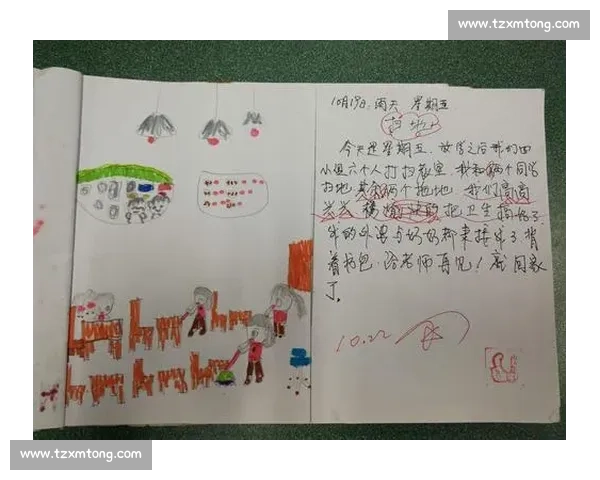 www.tzxmtong.com
10月19日 雨天 星期五
扫地
今天是星期五,放学之后我们四
小组六个人打扫教室,我和两个同学
扫地 其余两个拖地,我们高高
兴兴 快的把卫生搞好了
的外婆与奶奶都来接
着书包,给老师再见!就回家
了。
10.22
www.tzxmtong.com